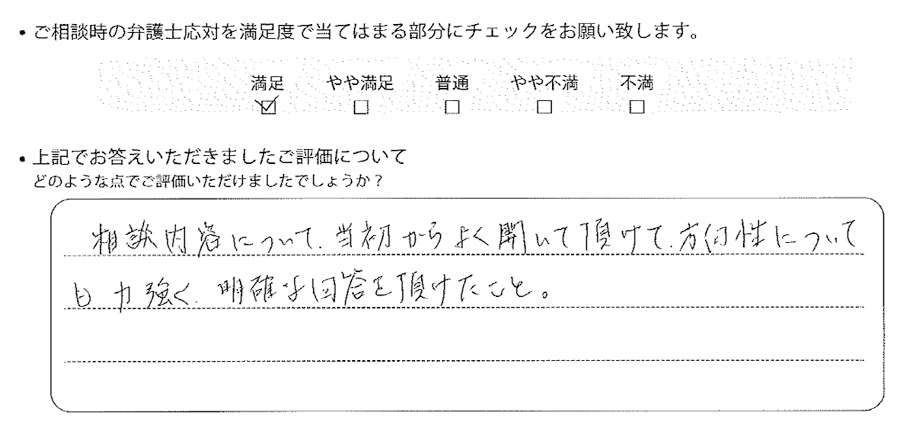 ・ご相談時の弁護士応対を満足度で当てはまる部分にチェックをお願い致します。
満足 やや満足 普通 やや不満 不満
☑ ☐ ☐ ☐ ☐
・上記でお答えいただきましたご評価について
どのような点でご評価いただけましたでしょうか？
相談内容について、当初からよく聞いて頂けて、方向性について
も力強く、明確な回答を頂けたこと。